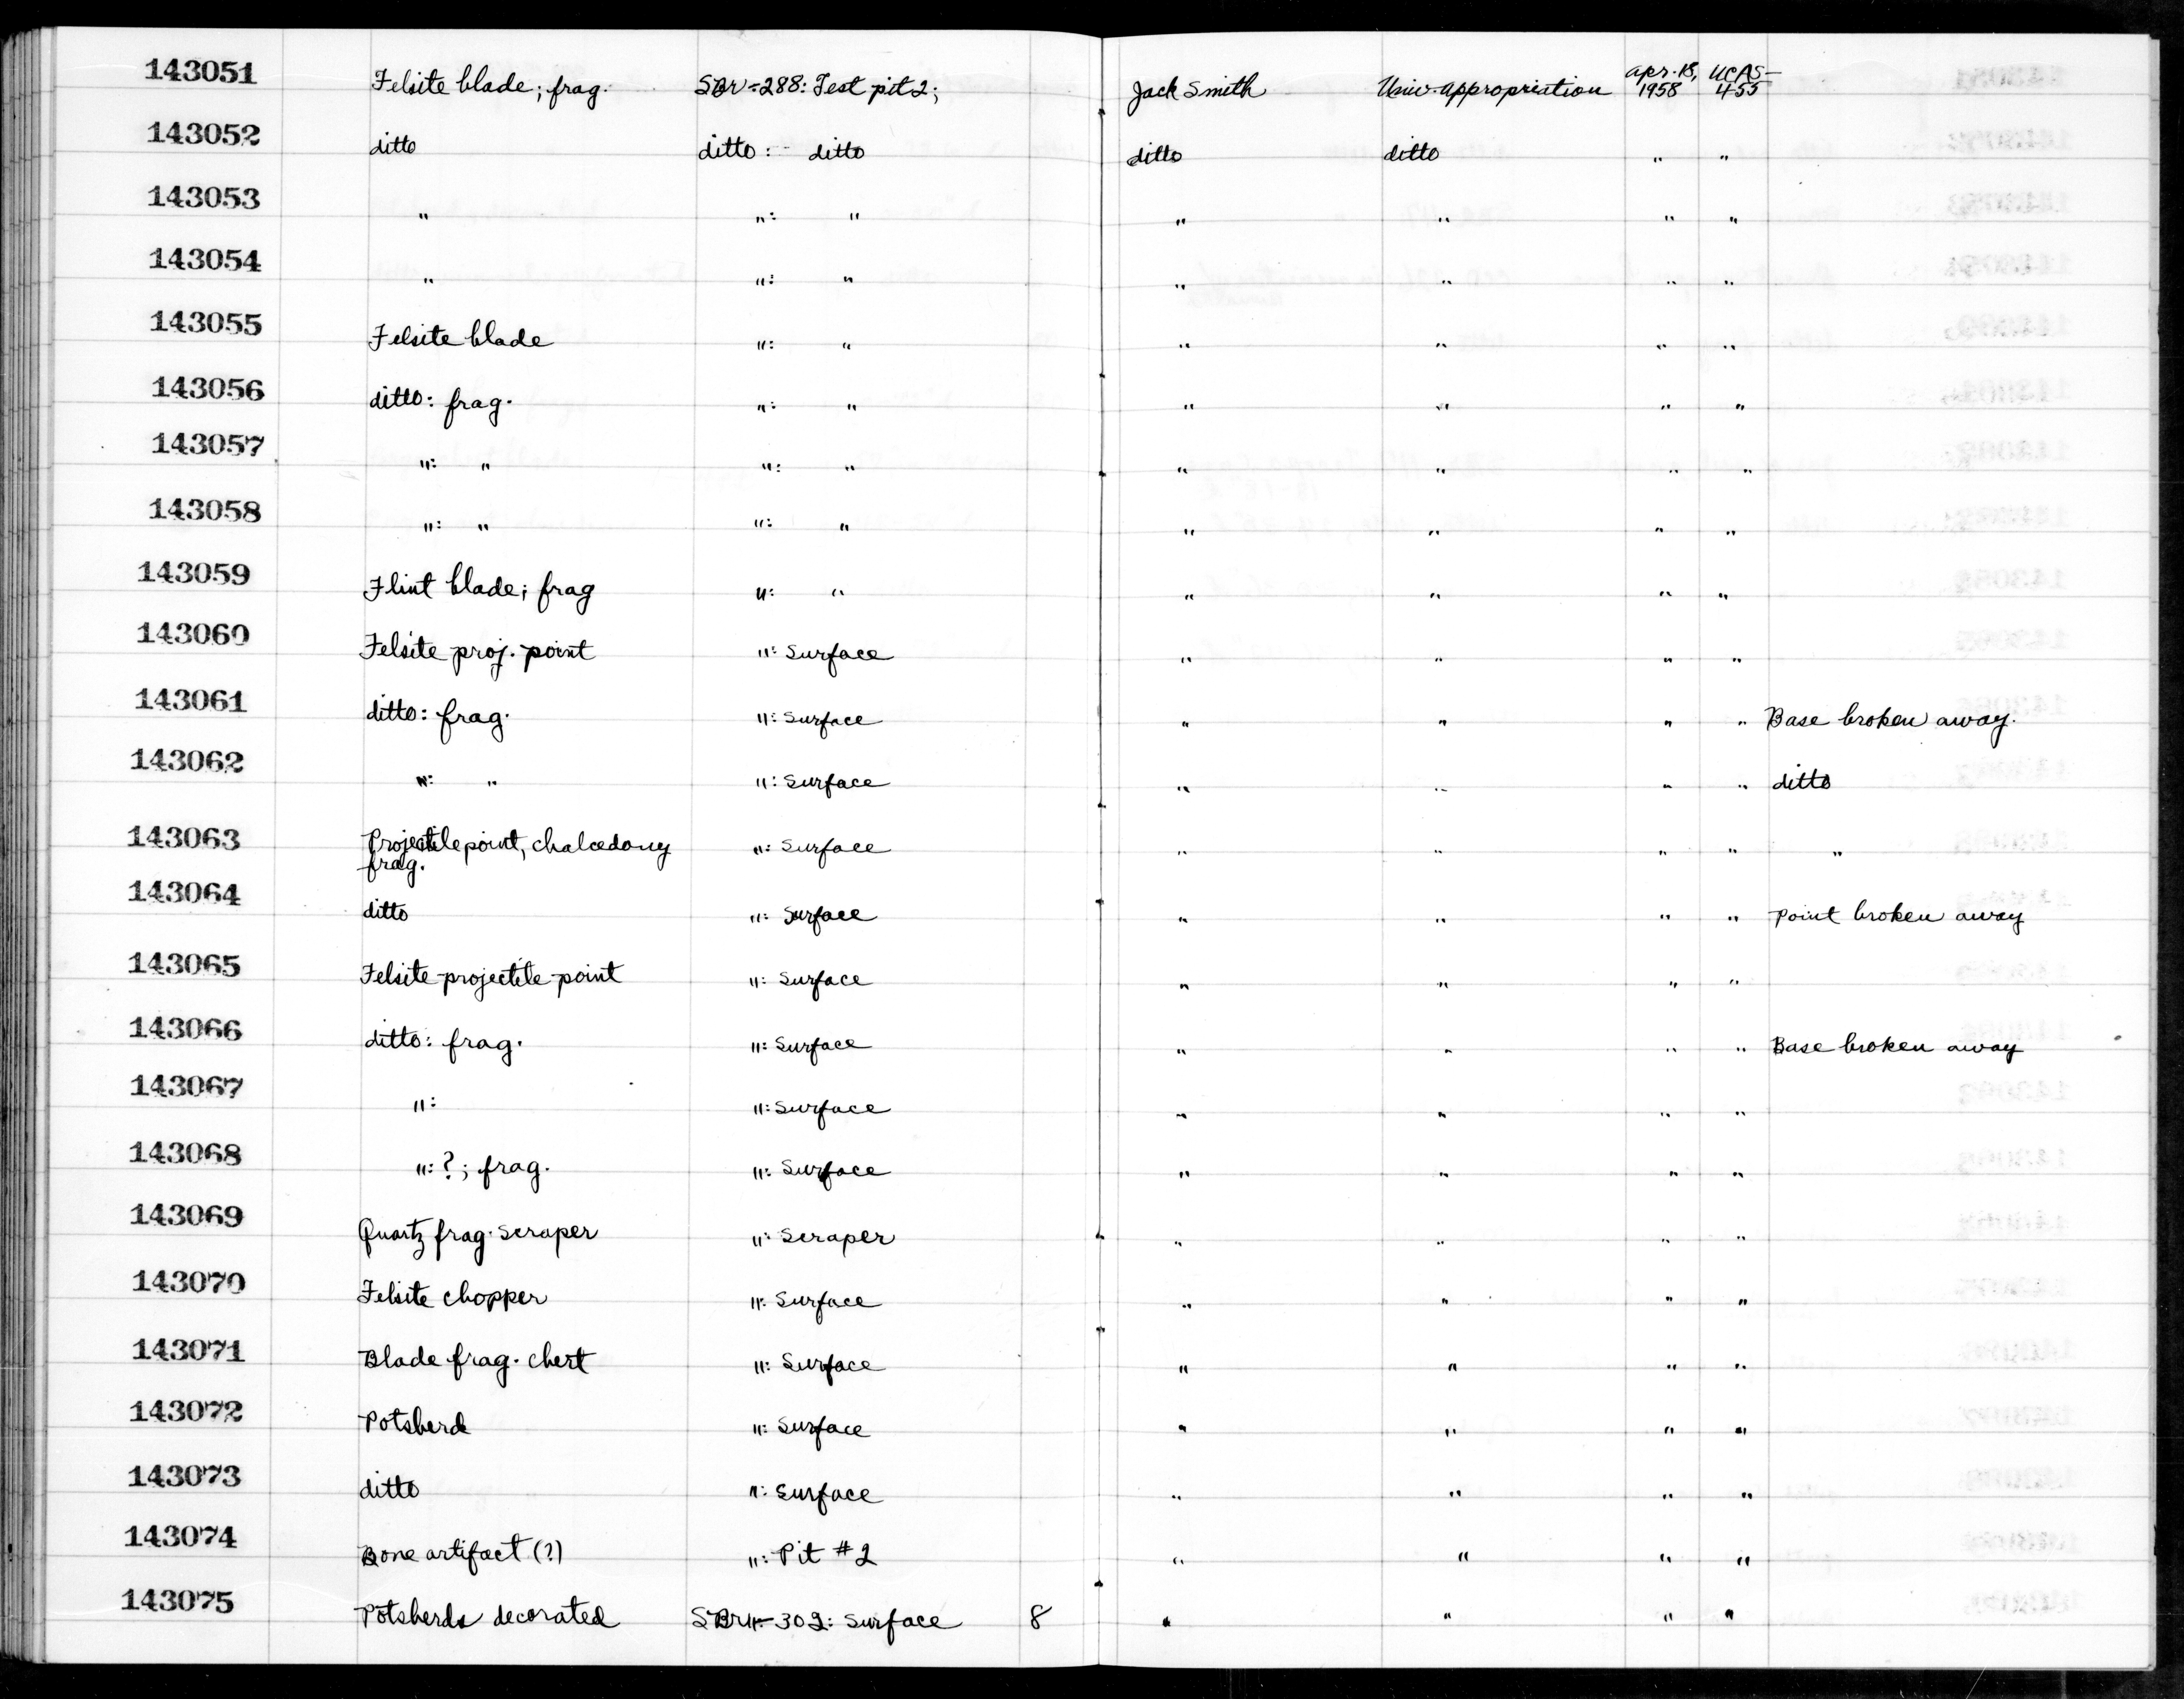 143051 Felsite blade; frag. SBr-288: Test pit 2; Jack Smith Univ. Appropriation Apr. 18, 1958 UCAS-455
143052 ditto ditto: - ditto ditto ditto " "
143053 " ": " " " " "
143054 " ": " " " " "
143055 Felsite blade ": " " " " "
143056 ditto: frag. ": " " " " "
143057 ": " ": " " " " "
143058 ": " ": " " " " "
143059 Flint blade; frag ": " " " " "
143060 Felsite proj. point ": Surface " " " "
143061 ditto: frag. ": Surface " " " " Base broken away.
143062 ": " ": Surface " " " " ditto
143063 Projectile point, chalcedony ": Surface " " " " "
frag.
143064 ditto ": Surface " " " " Point broken away
143065 Felsite projectile point ": Surface " " " "
143066 ditto: frag. ": Surface " " " " Base broken away
143067 ": ": Surface " " " "
143068 ": ?; frag. ": Surface " " " "
143069 Quartz frag. Scraper ": Scraper " " " "
143070 Felsite chopper ": Surface " " " "
143071 Blade frag. chert ": Surface " " " "
143072 Potsherd ": Surface " " " "
143073 ditto ": Surface " " " "
143074 Bone artifact (?) ": Pit #2 " " " "
143075 Potsherds decorated SBr-302: Surface 8 " " " "